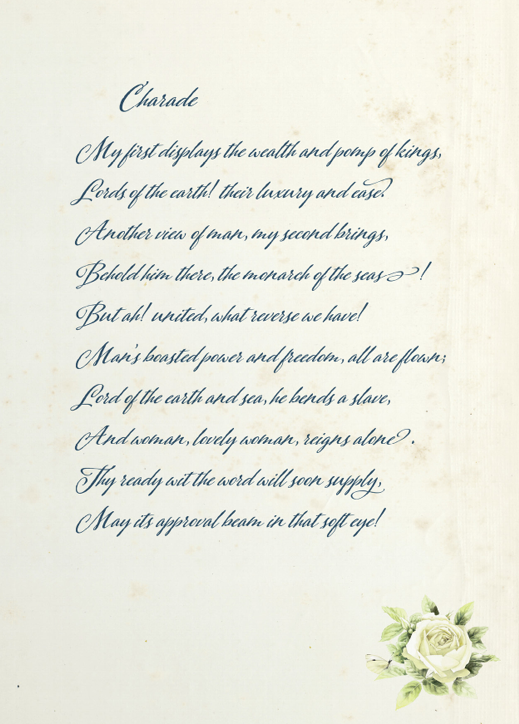 Charade
My first displays the wealth and pomp of kings,
Lords of the earth! their luxury and ease.
Another view of man, my second brings,
Behold him there, the monarch of the seas!
But ah! united, what reverse we have!
Man's boasted power and freedom, all are flown;
Lord of the earth and sea, he bends a slave,
And woman, lovely woman, reigns alone.
Thy ready wit the word will soon supply,
May its approval beam in that soft eye!